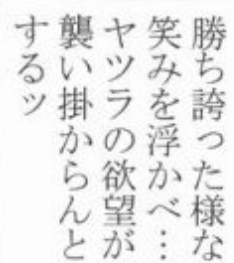 勝ち誇った様な
笑みを浮かべ…
ヤツラの欲望が
襲い掛からんと
するッ